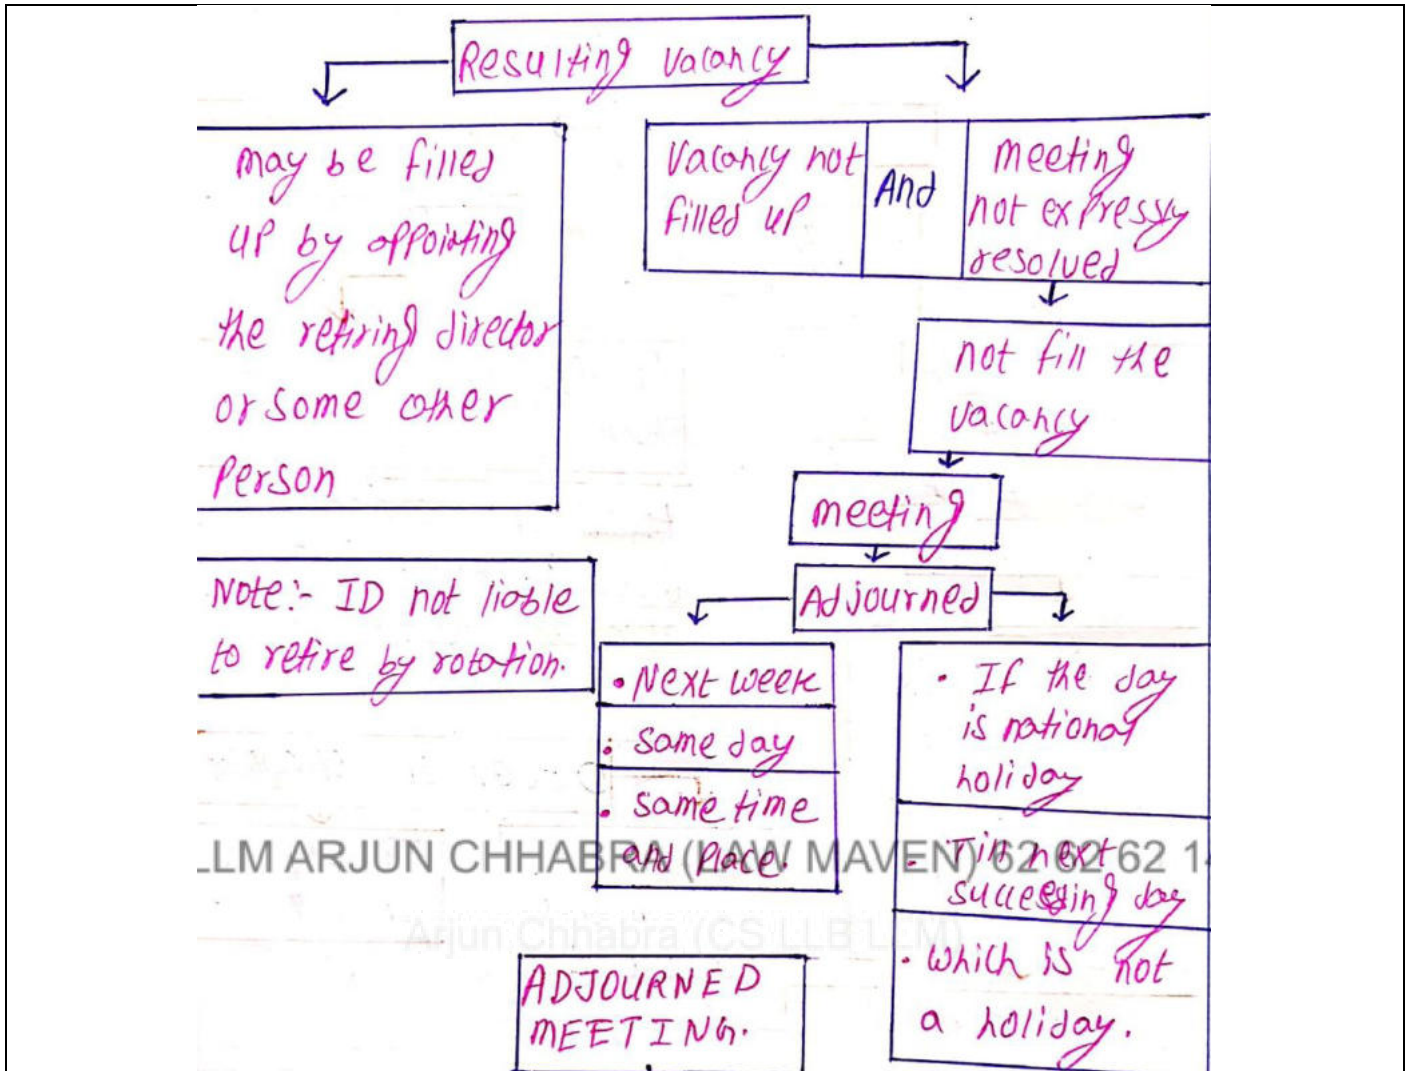 Resulting vacancy
may be filled
up by appointing
the retiring director
or some other
Person
Vacancy not
filled up
And
meeting
not expressy
resolved
not fill the
vacancy
meeting
Adjourned
Note:- ID not liable
to retire by rotation.
• Next week
• same day
• same time
and place.
• If the day
is national
holiday
• Till next
succesing day
• which is not
a holiday.
LLM ARJUN CHHABRA (LAW MAVEN) 62 62 62 1
Arjun Chhabra (CS LLB LLM)
ADJOURNED
MEETING.